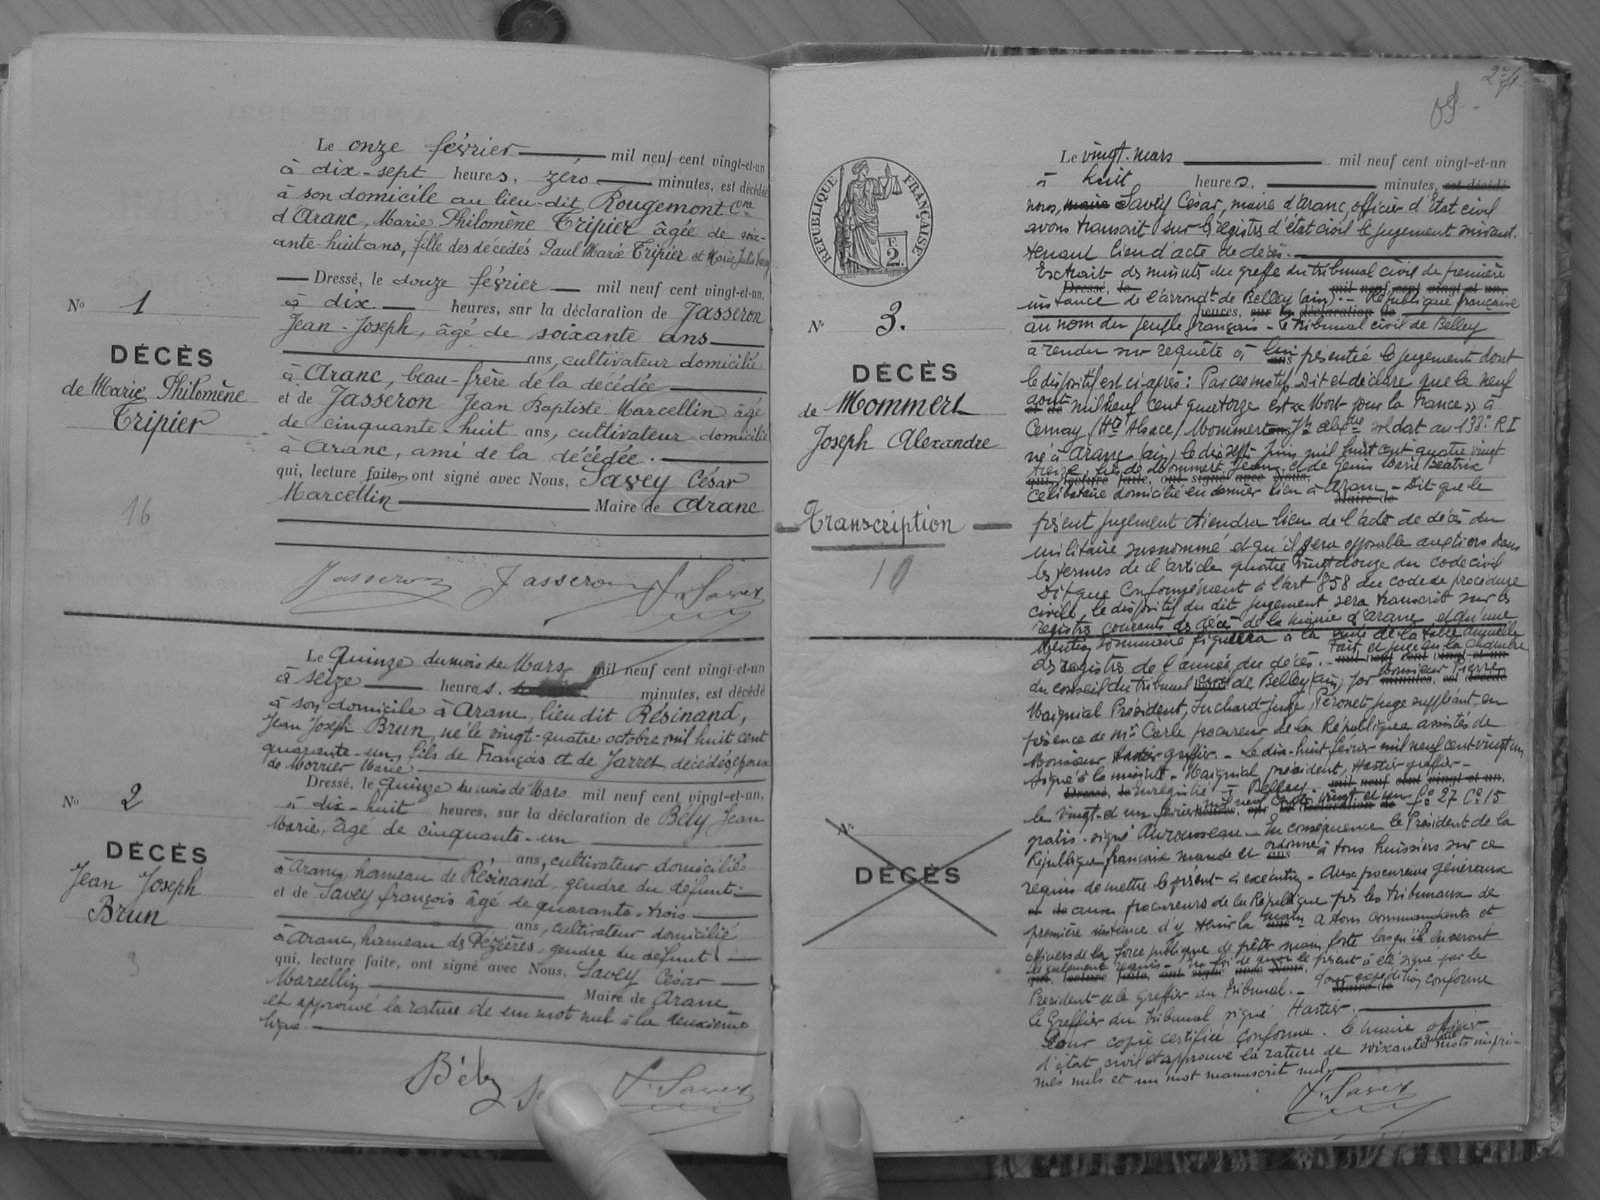 Le onze février mil neuf cent vingt-et-un
à dix-sept heures, zéro minutes, est décédée
à son domicile au lieu-dit Rougemont Cne
d'Aranc, Marie Philomène Tripier âgée de soix-
ante-huit ans, fille des décédés Paul Marie Tripier et Marie Julie
Dressé, le douze février mil neuf cent vingt-et-un,
à dix heures, sur la déclaration de Jasseron
Jean-Joseph, âgé de soixante ans
ans, cultivateur domicilié
à Aranc, beau-frère de la décédée
et de Jasseron Jean Baptiste Marcellin âgé
de cinquante-huit ans, cultivateur domicilié
à Aranc, ami de la décédée.
qui, lecture faite, ont signé avec Nous, Savey César
Marcellin Maire de Aranc
No 1
DÉCÈS
de Marie Philomène
Tripier
16
Jasseron Jasseron J. Savey
Le Quinze du mois de Mars mil neuf cent vingt-et-un
à seize heures, minutes, est décédé
à son domicile à Aranc, lieu dit Résinand,
Jean Joseph Brun, né le vingt-quatre octobre mil huit cent
quarante-un, fils de François et de Jarret, décédés, époux
de Morrier Marie
Dressé, le Quinze du mois de Mars mil neuf cent vingt-et-un,
à dix-huit heures, sur la déclaration de Bély Jean
Marie, âgé de cinquante-un
ans, cultivateur domicilié
à Aranc, hameau de Résinand, gendre du défunt
et de Savey françois âgé de quarante-trois
ans, cultivateur domicilié
à Aranc, hameau de Pézières, gendre du défunt
qui, lecture faite, ont signé avec Nous, Savey César
Marcellin Maire de Aranc
et approuvé la rature de un mot nul à la deuxième
ligne.
No 2
DÉCÈS
Jean Joseph
Brun
3
Bély J. Savey
RÉPUBLIQUE FRANÇAISE
2
No 3.
DÉCÈS
de Mommert
Joseph Alexandre
Transcription
10
No
DÉCÈS
Le vingt-mars mil neuf cent vingt-et-un
à huit heures, minutes, est décédé
nous, maire Savey César, maire d'Aranc, officier d'état civil
avons transcrit sur les registres d'état civil le jugement suivant
tenant lieu d'acte de décès.
Extrait des minutes du greffe du tribunal civil de première
Dressé, le mil neuf cent vingt-et-un,
instance de l'arrondt de Belley (ain). - République française
heures, sur la déclaration de
au nom du peuple français - le Tribunal civil de Belley
a rendu sur requête à lui présentée le jugement dont
le dispositif est ci-après: Par ces motifs Dit et déclare que le neuf
août mil neuf cent quatorze est « Mort pour la France » à
Cernay (Hte Alsace) Mommert Jh alexdre soldat au 133e R.I
né à Aranc (ain) le dix sept Juin mil huit cent quatre vingt
treize, fils de Mommert Jean et de Genis Marie Béatrix
qui, lecture faite, ont signé avec Nous,
célibataire domicilié en dernier lieu à Aranc - Dit que le
Maire de
présent jugement tiendra lieu de l'acte de décès du
militaire susnommé et qu'il sera opposable aux tiers dans
les termes de l'article quatre vingt douze du code civil
Dit que conformément à l'art 858 du code de procédure
civile, le dispositif du dit jugement sera transcrit sur les
registres courants de décès de la mairie d'Aranc et qu'une
Mention sommaire figurera à la suite de la table annuelle
des registres de l'année du décès. - Fait et jugé en la chambre
du conseil du tribunal civil de Belley (ain) par Monsieur Pierre
Maignial Président, Juchard Juge, Péronet juge suppléant, en
présence de Mr Carle procureur de la République assistés de
Monsieur Hastier greffier - Le dix-huit février mil neuf cent vingt un
signé à la minute - Maignial, président, Hastier greffier -
Dressé, le enregistré à Belley mil neuf cent vingt-et-un,
le vingt et un février mil neuf cent vingt et un Fo 27 Co 15
gratis - signé - En conséquence le Président de la
République française mande et ordonne à tous huissiers sur ce
requis de mettre le présent à exécution - Aux procureurs généraux
et aux procureurs de la République près les tribunaux de
première instance d'y tenir la main à tous commandants et
officiers de la force publique de prêter main forte lorsqu'ils en seront
légalement requis - En foi de quoi le présent a été signé par le
Président et le Greffier du Tribunal. - Pour expédition conforme
le Greffier du tribunal signé Hastier.
Pour copie certifiée conforme. le maire officier
d'état civil et approuvé la rature de soixante mots impri-
més nuls et un mot manuscrit nul.
J. Savey